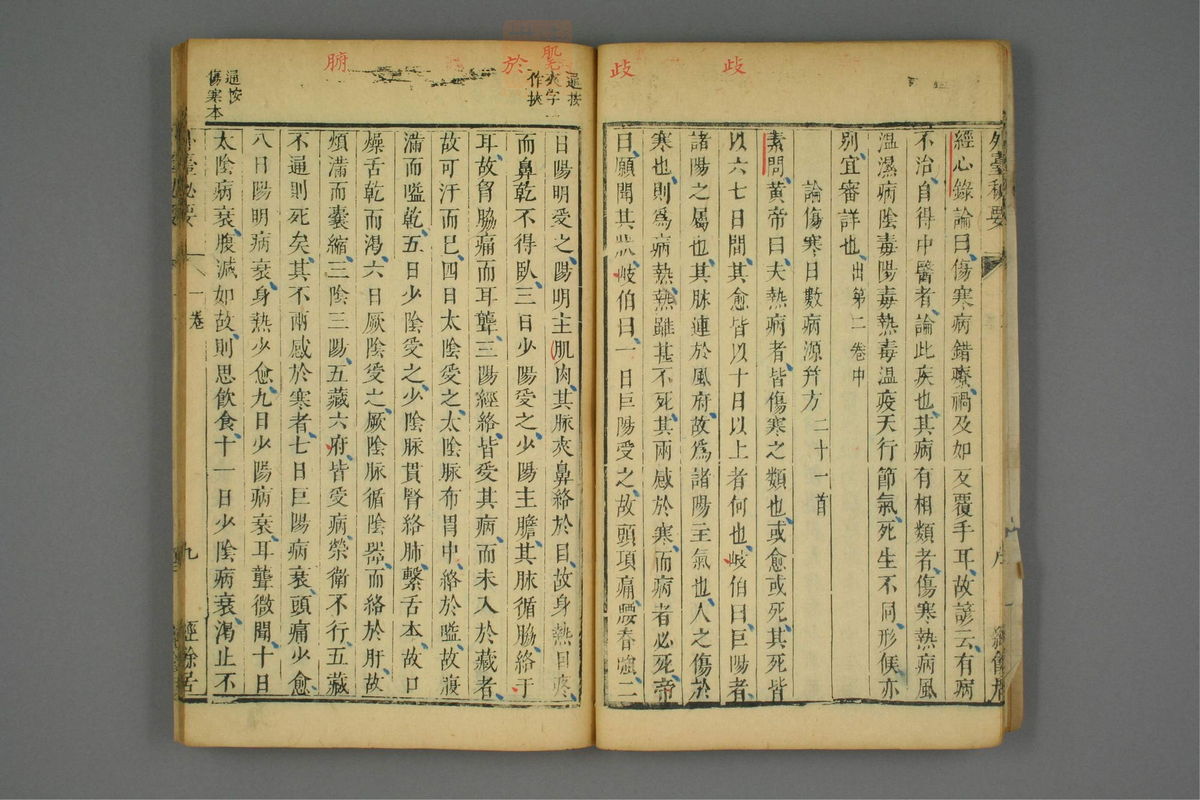 歧
歧
經心錄論曰傷寒病錯療禍及如反覆手耳故諺云有病
不治自得中醫者論此疾也其病有相類者傷寒熱病風
溫濕病陰毒陽毒熱毒溫疫天行節氣死生不同形候亦
別宜審詳也出第二卷中
論傷寒日數病源幷方二十一首
素問黃帝曰夫熱病者皆傷寒之類也或愈或死其死皆
以六七日間其愈皆以十日以上者何也岐伯曰巨陽者
諸陽之屬也其脉連於風府故爲諸陽主氣也人之傷於
寒也則爲病熱熱雖甚不死其兩感於寒而病者必死帝
曰願聞其狀岐伯曰一日巨陽受之故頭項痛腰脊強二
肌
於
腑
逼按
夾字一
作挾
逼按
傷寒本
日陽明受之陽明主肌肉其脈夾鼻絡於目故身熱目疼
而鼻乾不得臥三日少陽受之少陽主膽其脉循脇絡于
耳故胷脇痛而耳聾三陽經絡皆受其病而未入於藏者
故可汗而已四日太陰受之太陰脉布胃中絡於嗌故腹
滿而嗌乾五日少陰受之少陰脉貫腎絡肺繫舌本故口
燥舌乾而渴六日厥陰受之厥陰脉循陰器而絡於肝故
煩滿而囊縮三陰三陽五藏六府皆受病榮衛不行五藏
不通則死矣其不兩感於寒者七日巨陽病衰頭痛少愈
八日陽明病衰身熱少愈九日少陽病衰耳聾微聞十日
太陰病衰腹減如故則思飲食十一日少陰病衰渴止不
外臺秘要
一卷
九
經餘居